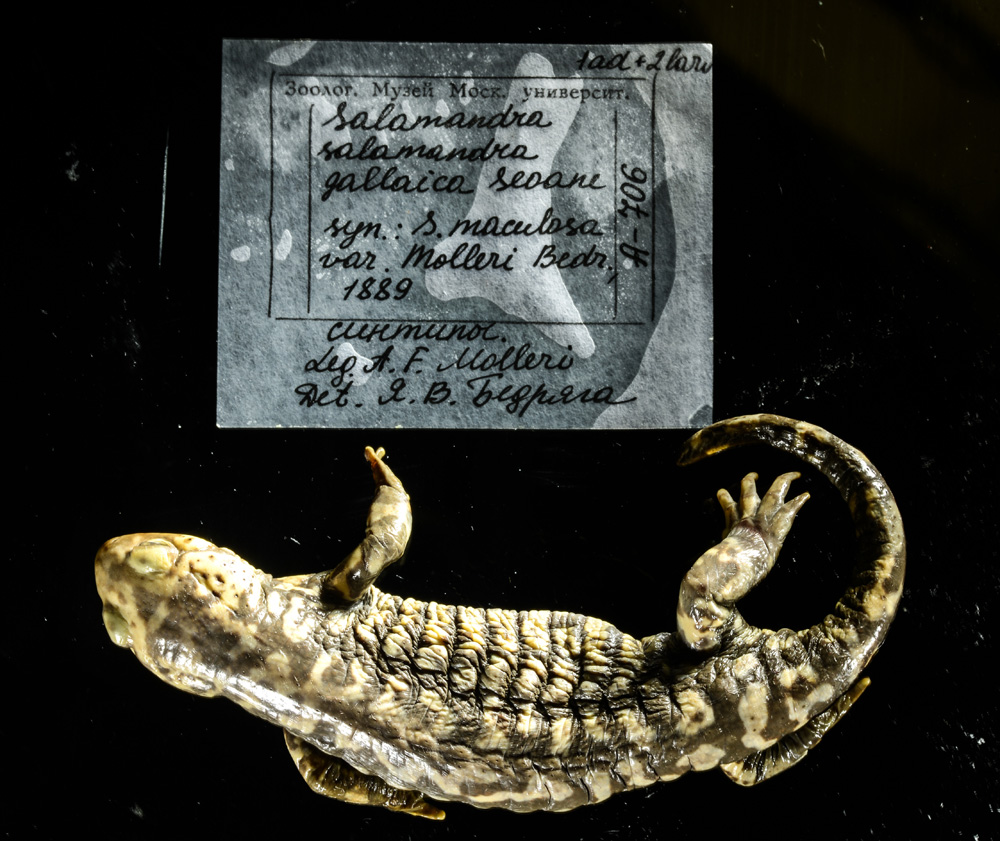 1ad + 2 larv
Зоолог. Музей Моск. университ.
Salamandra
salamandra
gallaica Seoane
syn.: S. maculosa
var. Molleri Bedr.,
1889
A-706
синтипы.
Leg. A. F. Molleri
Det. Я. В. Бедряга